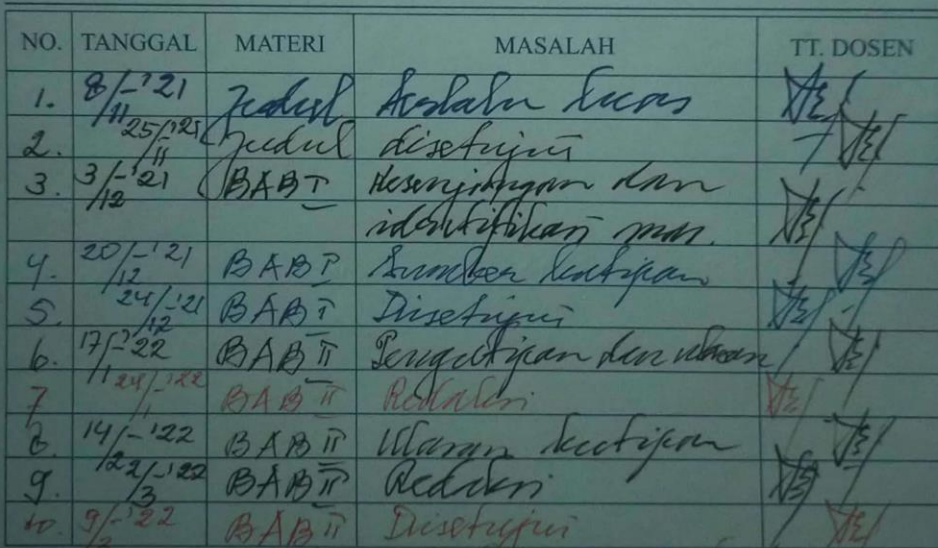 NO. TANGGAL MATERI MASALAH TT. DOSEN
1. 8/11-'21 Judul luas
2. 25/11-'21 Judul disetujui
3. 3/12-'21 BAB I Kesenjangan dan
identifikasi mas.
4. 20/12-'21 BAB I Sumber kutipan
5. 24/12-'21 BAB I Disetujui
6. 17/1-'22 BAB II Pengutipan dan ulasan
7 24/1-'22 BAB II Redaksi
8. 14/2-'22 BAB II Ulasan kutipan
9. 2/3-'22 BAB II Redaksi
10. 9/3-'22 BAB II Disetujui